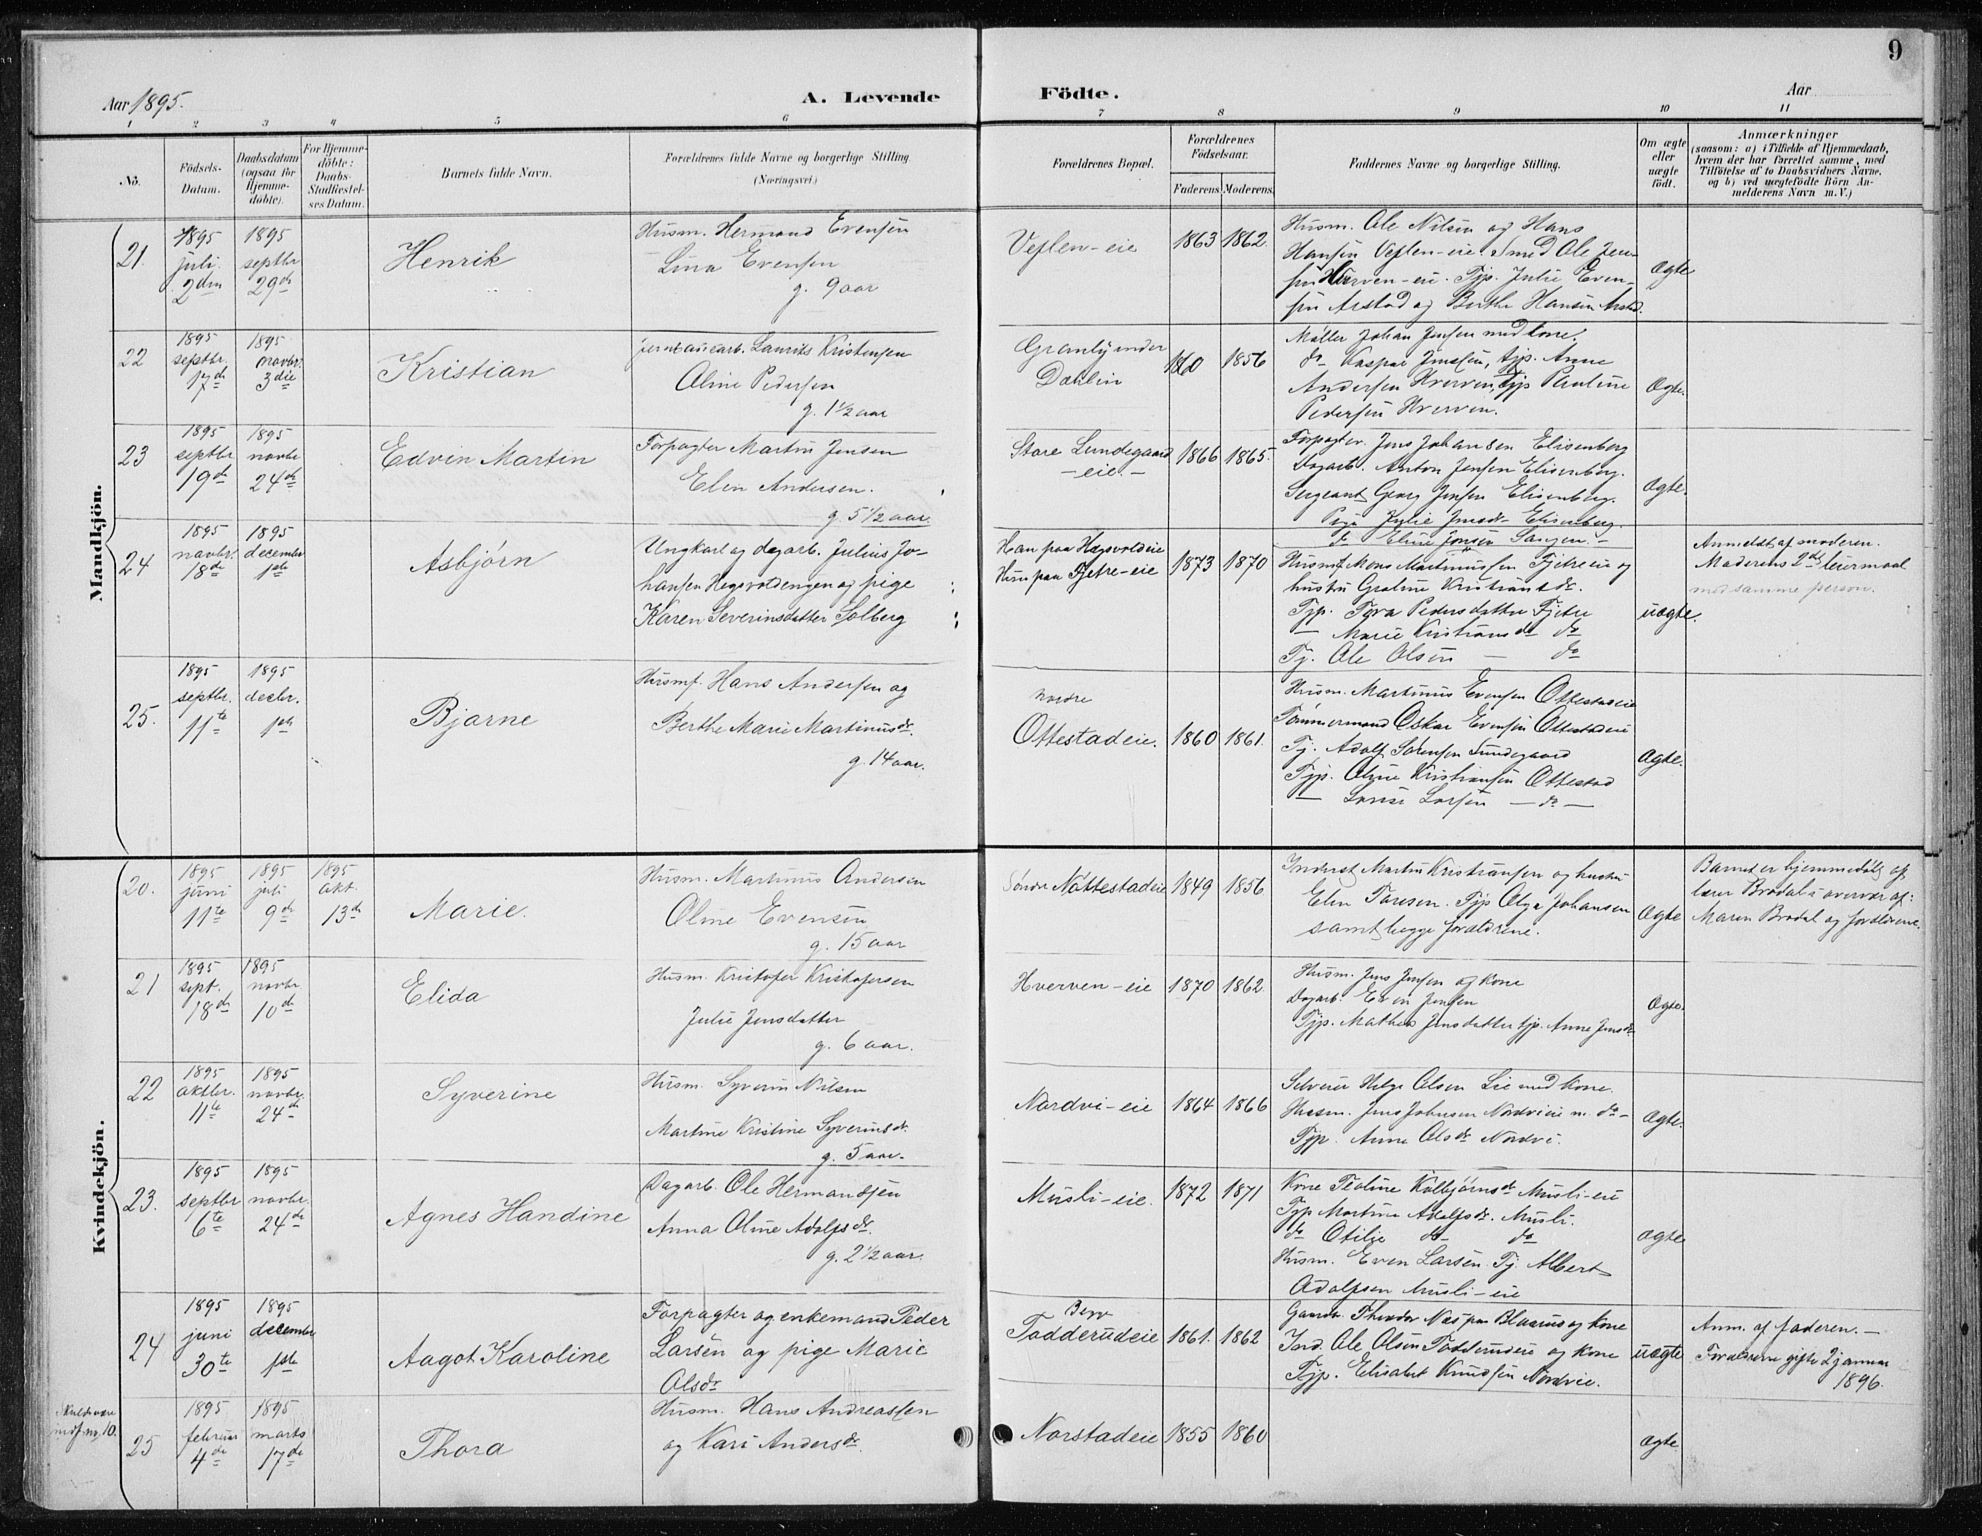 9
Aar 1895.
A. Levende Födte.
Aar
1 2 3 4 5 6 7 8 9 10 11
No.
Födsels-Datum.
Daabsdatum (ogsaa for Hjemme-döbte).
For Hjemme-döbte: Daabs-Stadfæstel-ses Datum.
Barnets fulde Navn.
Forældrenes fulde Navne og borgerlige Stilling (Næringsvei.)
Forældrenes Bopæl.
Forældrenes Födselsaar.
Faderens. Moderens.
Faddernes Navne og borgerlige Stilling.
Om ægte eller uægte födt.
Anmærkninger
(saasom: a) i Tilfælde af Hjemmedaab, hvem der har forrettet samme, med Tilföielse af to Daabsvidners Navne, og b) ved uægtefödte Börn An-melderens Navn m. V.)
Mandkjön.
21.
1895 juli 2den
1895 septbr 29de
Henrik
Husm. Hermand Evensen
Lina Evensen
g. 9 aar
Veflen-eie
1863 1862.
Husm. Ole Nilsen og Hans
Hansen Veflen-eie. Smed Ole Jen-
sen Hverven-eie. Tjp. Julie Even-
sen Arstad og Berthe Hansen Arstad.
Ægte
22
1895 septbr. 17de
1895 novbr. 3die
Kristian
Laurits Kristensen
Oline Pedersen
g. 1 1/2 aar
Granly under
Dæhlin
1860 1856
Møller Johan Jensen med kone,
do Kaspar Jenssen, tjp. Anne
Andersen Hverven, tjp Pauline
Pedersen Hverven.
Ægte.
23
1895 septbr 19de
1895 novbr 24de
Edvin Martin
Forpagter Martin Jensen
Elen Andersen.
g. 5 1/2 aar.
Store Lundegaard
-eie-
1866 1865.
Forpagter. Jens Johansen Elisenberg
Dagarb. Anton Jensen Elisenberg.
Sergeant Georg Jensen Elisenberg.
Pige Julie Jensdr Elisenberg.
do Eline Jensen Sangen. -
Ægte.
24
1895 novbr. 18de
1895 december 1ste
Asbjørn
Ungkarl og dagarb. Julius Jo-
hansen Hegsvoldengen og pige
Karen Severinsdatter Solberg
Han paa Hegsvoldeie
Hun paa Fjetre-eie
1873 1870
Husmf. Mons Martinussen Fjetreeie og
hustru Graline Kristiansdr.
Tjp. Tora Pedersdatter Fjetre
— Marie Kristiansdr do
Tj. Ole Olsen — do
uægte.
Anmeldt af moderen.
Moderens 2det leiermaal
med samme person.
25.
1895 septbr. 11te
1895 decbr. 1ste
Bjarne
Husmf. Hans Andersen og
Berthe Marie Martinusdr.
g. 14 aar.
nordre
Ottestadeie.
1860 1861.
Husm. Martinus Evensen Ottestadeie
Tømmermand Oskar Evensen Ottestadeie
Tj. Adolf Sørensen Lundegaard
Tjp. Oline Kristiansen Ottestad
— Lovise Larsen — do —
Ægte.
Kvindekjön.
20.
1895 juni 11te
1895 juli 9de
1895 okt. 13de
Marie.
Husm. Martinus Andersen
Oline Evensen
g. 15 aar
Søndre Nøttestadeie
1849 1856
Inderst Martin Kristiansen og hustru
Elen Toresen. Tjp Olga Johansen
samt begge forældrene.
Ægte
Barnet er hjemmedøbt af
lærer Brødal i overvær af:
Maren Brødal og forældrene.
21
1895 sept. 18de
1895 novbr 10de
Elida
Husm. Kristofer Kristofersen
Julie Jensdatter
g. 6 aar.
Hverven-eie
1870 1862.
Husm. Jens Jensen og kone
Dagarb. Even Jensen
Tjp. Mathea Jensdatter tjp. Anne Jensdr
Ægte.
22
1895 oktbr. 11te
1895 novbr. 24de
Syverine
Husm. Syverin Nilsen
Martine Kristine Syverinsdr.
g. 5 aar.
Nordvi-eie
1864 1866
Selveier Helge Olsen Lie med kone.
Husm. Jens Johnsen Nordvieie m. do-
Tjp. Anne Olsdr Nordvi.
Ægte.
23.
1895 septbr 6te
1895 novbr. 24de
Agnes Handine
Dagarb. Ole Hermandsen
Anna Oline Adolfsdr.
g. 2 1/2 aar.
Musli-eie.
1872 1871
Kone Teoline Kolbjørnsdr Musli-eie
Tjp Martine Adolfsdr. Musli.
do Otilje do do
Husm. Even Larsen. Tj. Albert
Adolfsen Musli-eie
ægte
24
1895 juni 30te
1895 december 1ste
Aagot Karoline
Forpagter og enkemand Peder
Larsen og pige Marie
Olsdr
Todderudeie
1861. 1862
Gaardr. Theodor Næs paa Blaarud og kone
Ind. Ole Olsen Todderudeie og kone
Tjp. Elisabet Knudsen Nordvie.
uægte
Anm. af faderen. —
Forældrene gifte 2 januar
1896.
Skulde være
indf. nr. 10.
25
1895 februar 4de
1895 marts 17de
Thora
Husm. Hans Andreassen
og Kari Andersdr.
Norstadeie
1855 1860
ægte